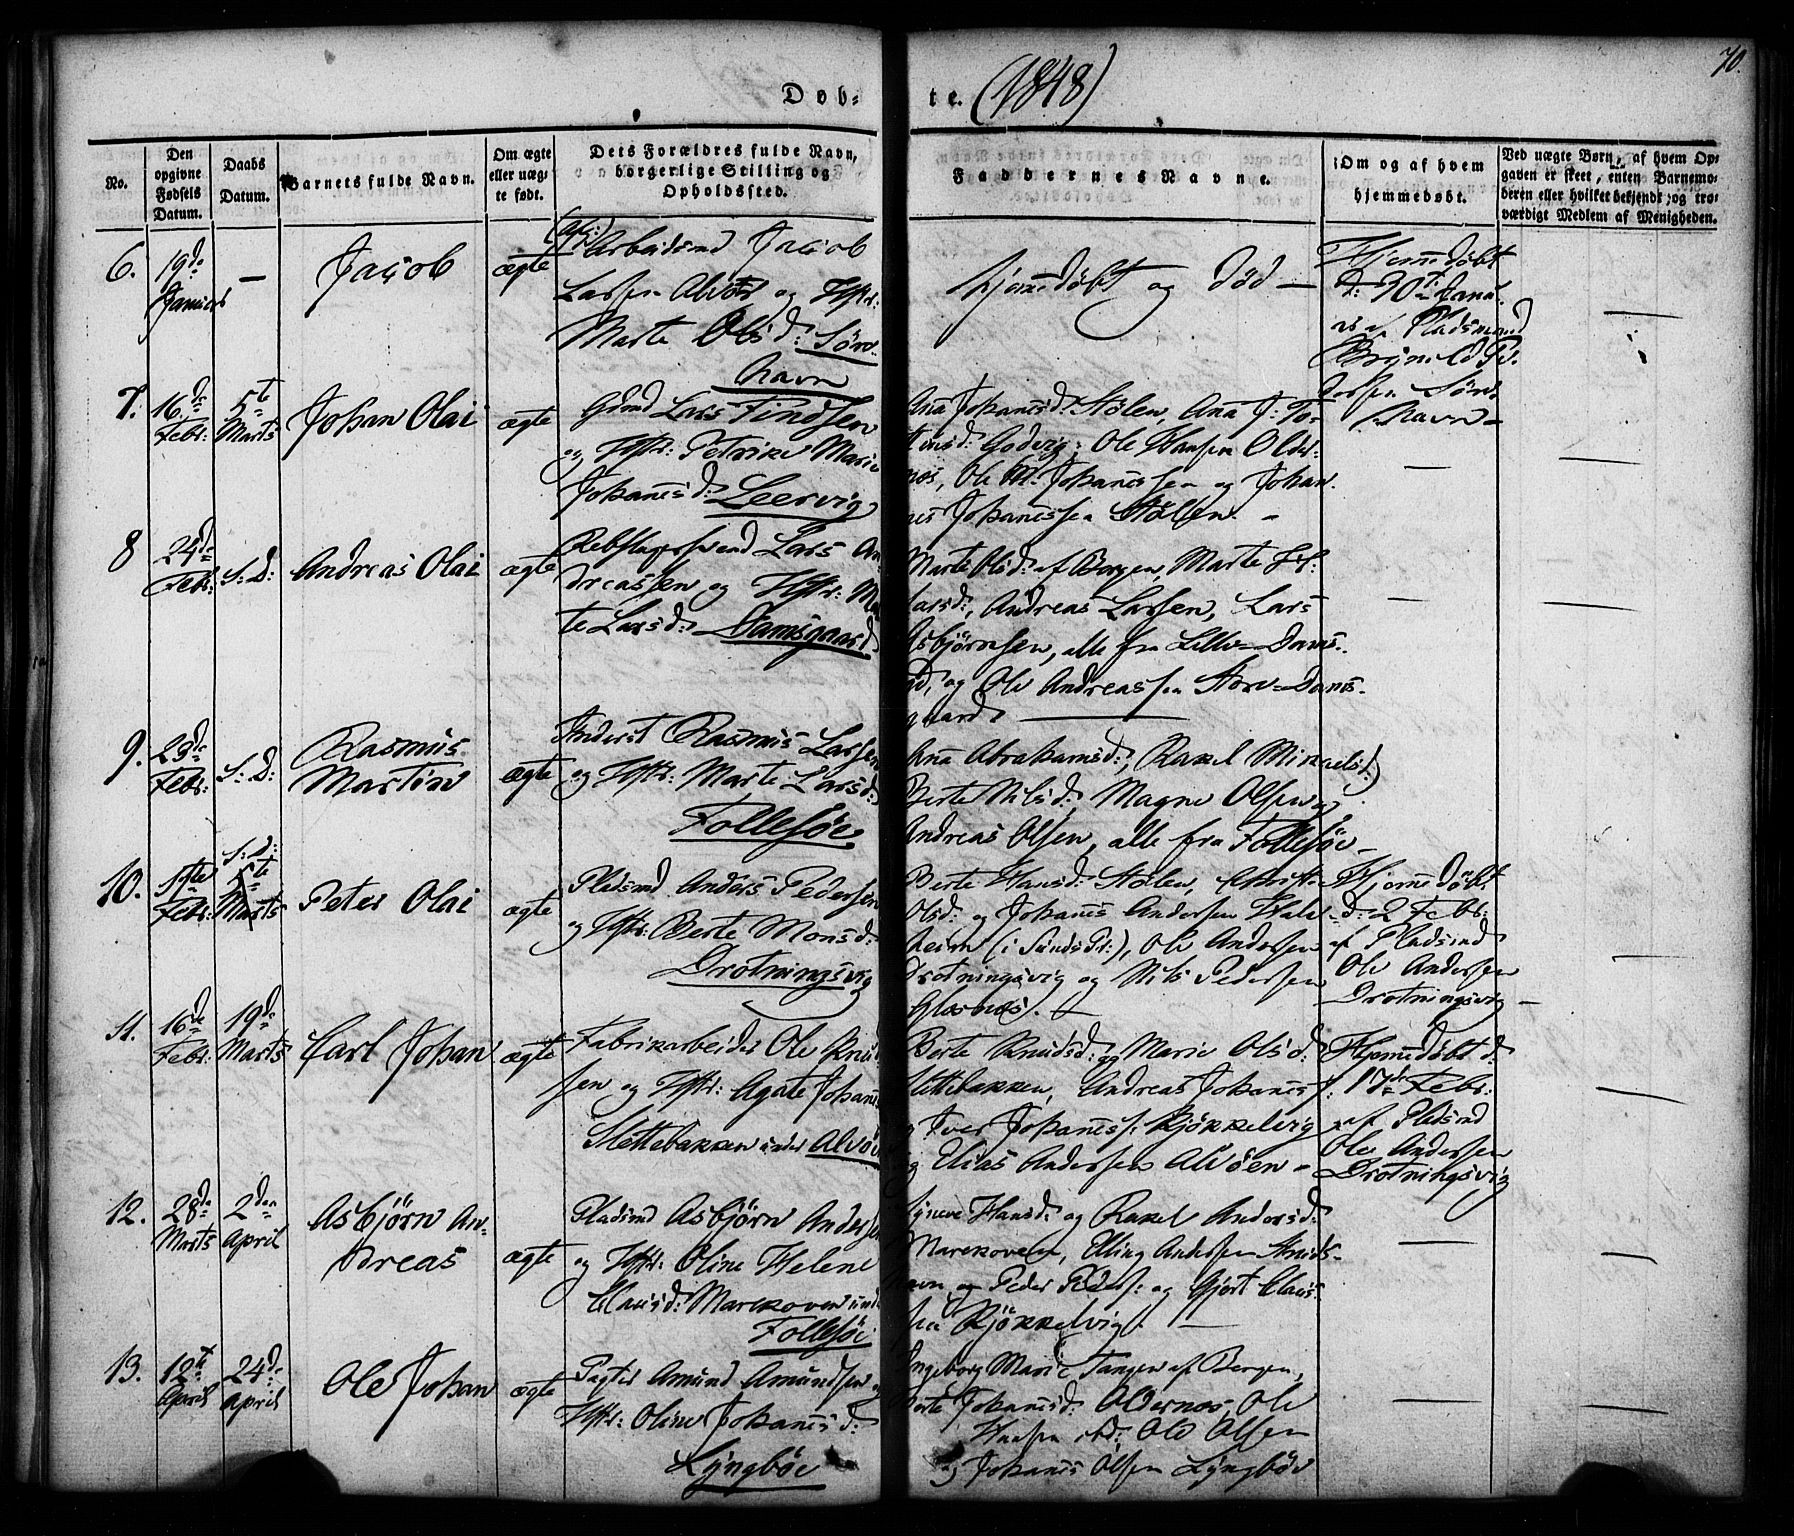 70.
Døb- te. (1848)
No.
Den opgivne Fødsels Datum.
Daabs Datum.
Barnets fulde Navn.
Om ægte eller uægte født.
Dets Forældres fulde Navn, borgerlige Stilling og Opholdssted.
Faddernes Navne.
Om og af hvem hjemmedøbt.
Ved uægte Børn, af hvem Opgaven er skeet, enten Barnemoderen eller hvilket bekjendt og troværdigt Medlem af Menigheden.
6.
19de
Januar
—
Jacob
ægte
Arbeidsmd Jacob
Larsen Alvøen og Hstr:
Marte Olsd: Søre-
havn
hjemedøbt og død —
Hjemedøbt
d: 30te Janu-
ar af Pladsmand
Brynild Pe-
dersen Søre
havn —
7.
16de
Febr:
5te
Marts
Johan Olai
ægte
Gdmd Lars Findsen
og Hstr: Petrike Marie
Johanesd: Leervig
Ana Johanesd: Stølen, Ana J: To-
stensd: Godvig, Ole Hansen Older-
nes, Ole M. Johanessen og Johan-
nes Johanessen Stølen. —
8
24de
Febr:
S: D:
Andreas Olai
ægte
Rebslagersvend Lars An-
dreassen og Hstr: Mar-
te Larsd: Damsgaard
Marte Olsd: af Bergen, Marte
Larsd:, Andreas Larsen, Lars
Asbjørnsen, alle fra Lille-Dams-
gd, og Ole Andreassen Store-Dams-
gaard
9.
23de
Febr:
S: D:
Rasmus
Martin
ægte
Inderst Rasmus Larsen
og Hstr: Marte Larsd:
Follesøe
Ana Abrahamsd:, Rakel Mikkelsd:
Berte Nilsd:, Magne Olsen og
Andreas Olsen, alle fra Follesøe —
10.
Febr:
S: D:
5te
Marts
Peter Olai
ægte
Pladsmd Anders Pedersen
og Hstr: Berte Monsd:
Drotningsvig
Berte Hansd: Stølen, Christi
Olsd: og Johanes Andersen Hald-
heim (i Sunds Pr:), Ole Andersen
Drotningsvig og Nils Pedersen
Glasnes.
Hjemedøbt
d: 2 Febr:
af Pladsmd
Ole Andersen
Drotningsvig
11.
16de
Febr:
19de
Marts
Carl Johan
ægte
Fabrikarbeider Ole Knud-
sen og Hstr: Agate Johanes
Slettebakken under Alvøen
Berte Knudsd: og Marie Olsd:
Slettebakken, Andreas Johaness:
og Iver Johaness: Kjøkkelvig
og Elias Andersen Alvøen —
Hjemedøbt d:
17de Febr:
af Pladsmd
Ole Andersen
Drotningsvig
12.
28de
Marts
2den
April
Asbjørn An-
dreas
ægte
Pladsmd Asbjørn Andersen
og Hstr: Oline Helene
Clausd: Marekoven under
Follesøe
Synneve Hansd: og Rakel Andersd:
Marekoven, Elling Andersen Strids-
havn og Peder Peders: og Gjert Claus-
sen Kjøkkelvig. —
13.
12te
April
24de
April
Ole Johan
ægte
Pagter Amund Amundsen og
Hstr: Oline Johanesd:
Lyngbøe
Ingeborg Marie Tangen af Bergen,
Berte Johanesd: Oldernes, Ole
Hansen ibd: Ole Olsen
og Johanes Olsen Lyngbøe